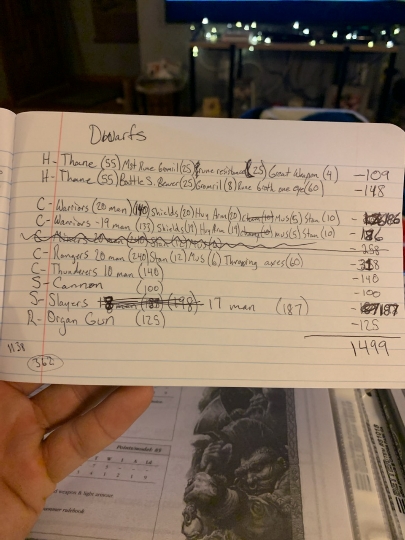 Dwarfs
H- Thane (55) Mst Rune Gromil (25) rune resistance (25) Great Weapon (4) -109
H- Thane (55) Battle S. Bearer (25) Gromril (8) Rune Groth one eye (60) -148
C- Warriors (20 man) (140) Shields (20) Hvy Arm (20) Mus (5) Stan (10)
C- Warriors -19 man (133) Shields (19) Hvy Arm (19) mus (5) Stan (10)
C- Rangers 20 man (240) Stan (12) Mus (6) Throwing axes (60) -318
C- Thunderers 10 man (140) -140
S- Cannon (100) -100
S- Slayers 17 man (187) 187
R- Organ Gun (125) -125
1499
1138
362
Points/model: